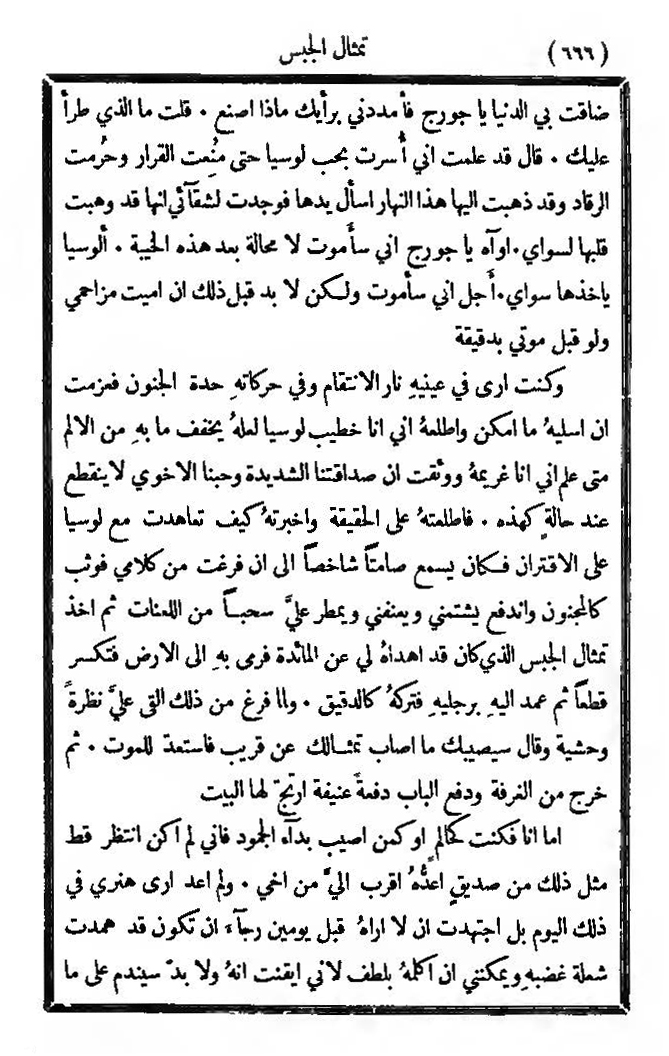 (٦٦٦) تمثال الجبس
ضاقت بي الدنيا يا جورج فأمددني برأيك ماذا اصنع ٠ قلت ما الذي طرأ
عليك ٠ قال قد علمت اني أُسرت بحب لوسيا حتى مُنعت القرار وحُرمت
الرقاد وقد ذهبت اليها هذا النهار اسأل يدها فوجدت لشقآئي انها قد وهبت
قلبها لسواي ٠ اوآه يا جورج اني سأموت لا محالة بعد هذه الخيبة ٠ ألوسيا
ياخذها سواي ٠ أَجل اني سأموت ولكن لا بد قبل ذلك ان اميت مزاحمي
ولو قبل موتي بدقيقة
وكنت ارى في عينيهِ نار الانتقام وفي حركاتهِ حدة الجنون فعزمت
ان اسليهُ ما امكن واطلعهُ اني انا خطيب لوسيا لعلهُ يخفف ما بهِ من الالم
متى علم اني انا غريمهُ ووثقت ان صداقتنا الشديدة وحبنا الاخوي لا ينقطع
عند حالةٍ كهذه ٠ فاطلعتهُ على الحقيقة واخبرتهُ كيف تعاهدت مع لوسيا
على الاقتران فكان يسمع صامتاً شاخصاً الى ان فرغت من كلامي فوثب
كالمجنون واندفع يشتمني ويعنفني ويمطر عليَّ سحباً من اللعنات ثم اخذ
تمثال الجبس الذي كان قد اهداهُ لي عن المائدة فرمى بهِ الى الارض فتكسر
قطعاً ثم عمد اليهِ برجليهِ فتركهُ كالدقيق ٠ ولما فرغ من ذلك القى عليَّ نظرةً
وحشية وقال سيصيبك ما اصاب تمثالك عن قريب فاستعدّ للموت ٠ ثم
خرج من الغرفة ودفع الباب دفعةً عنيفة ارتجّ لها البيت
اما انا فكنت كحالمٍ او كمن اصيب بدآء الجمود فاني لم اكن انتظر قط
مثل ذلك من صديقٍ اعدُّهُ اقرب اليَّ من اخي ٠ ولم اعد ارى هنري في
ذلك اليوم بل اجتهدت ان لا اراهُ قبل يومين رجآء ان تكون قد همدت
شعلة غضبهِ ويمكنني ان اكلمهُ بلطف لاني ايقنت انهُ ولا بدّ سيندم على ما